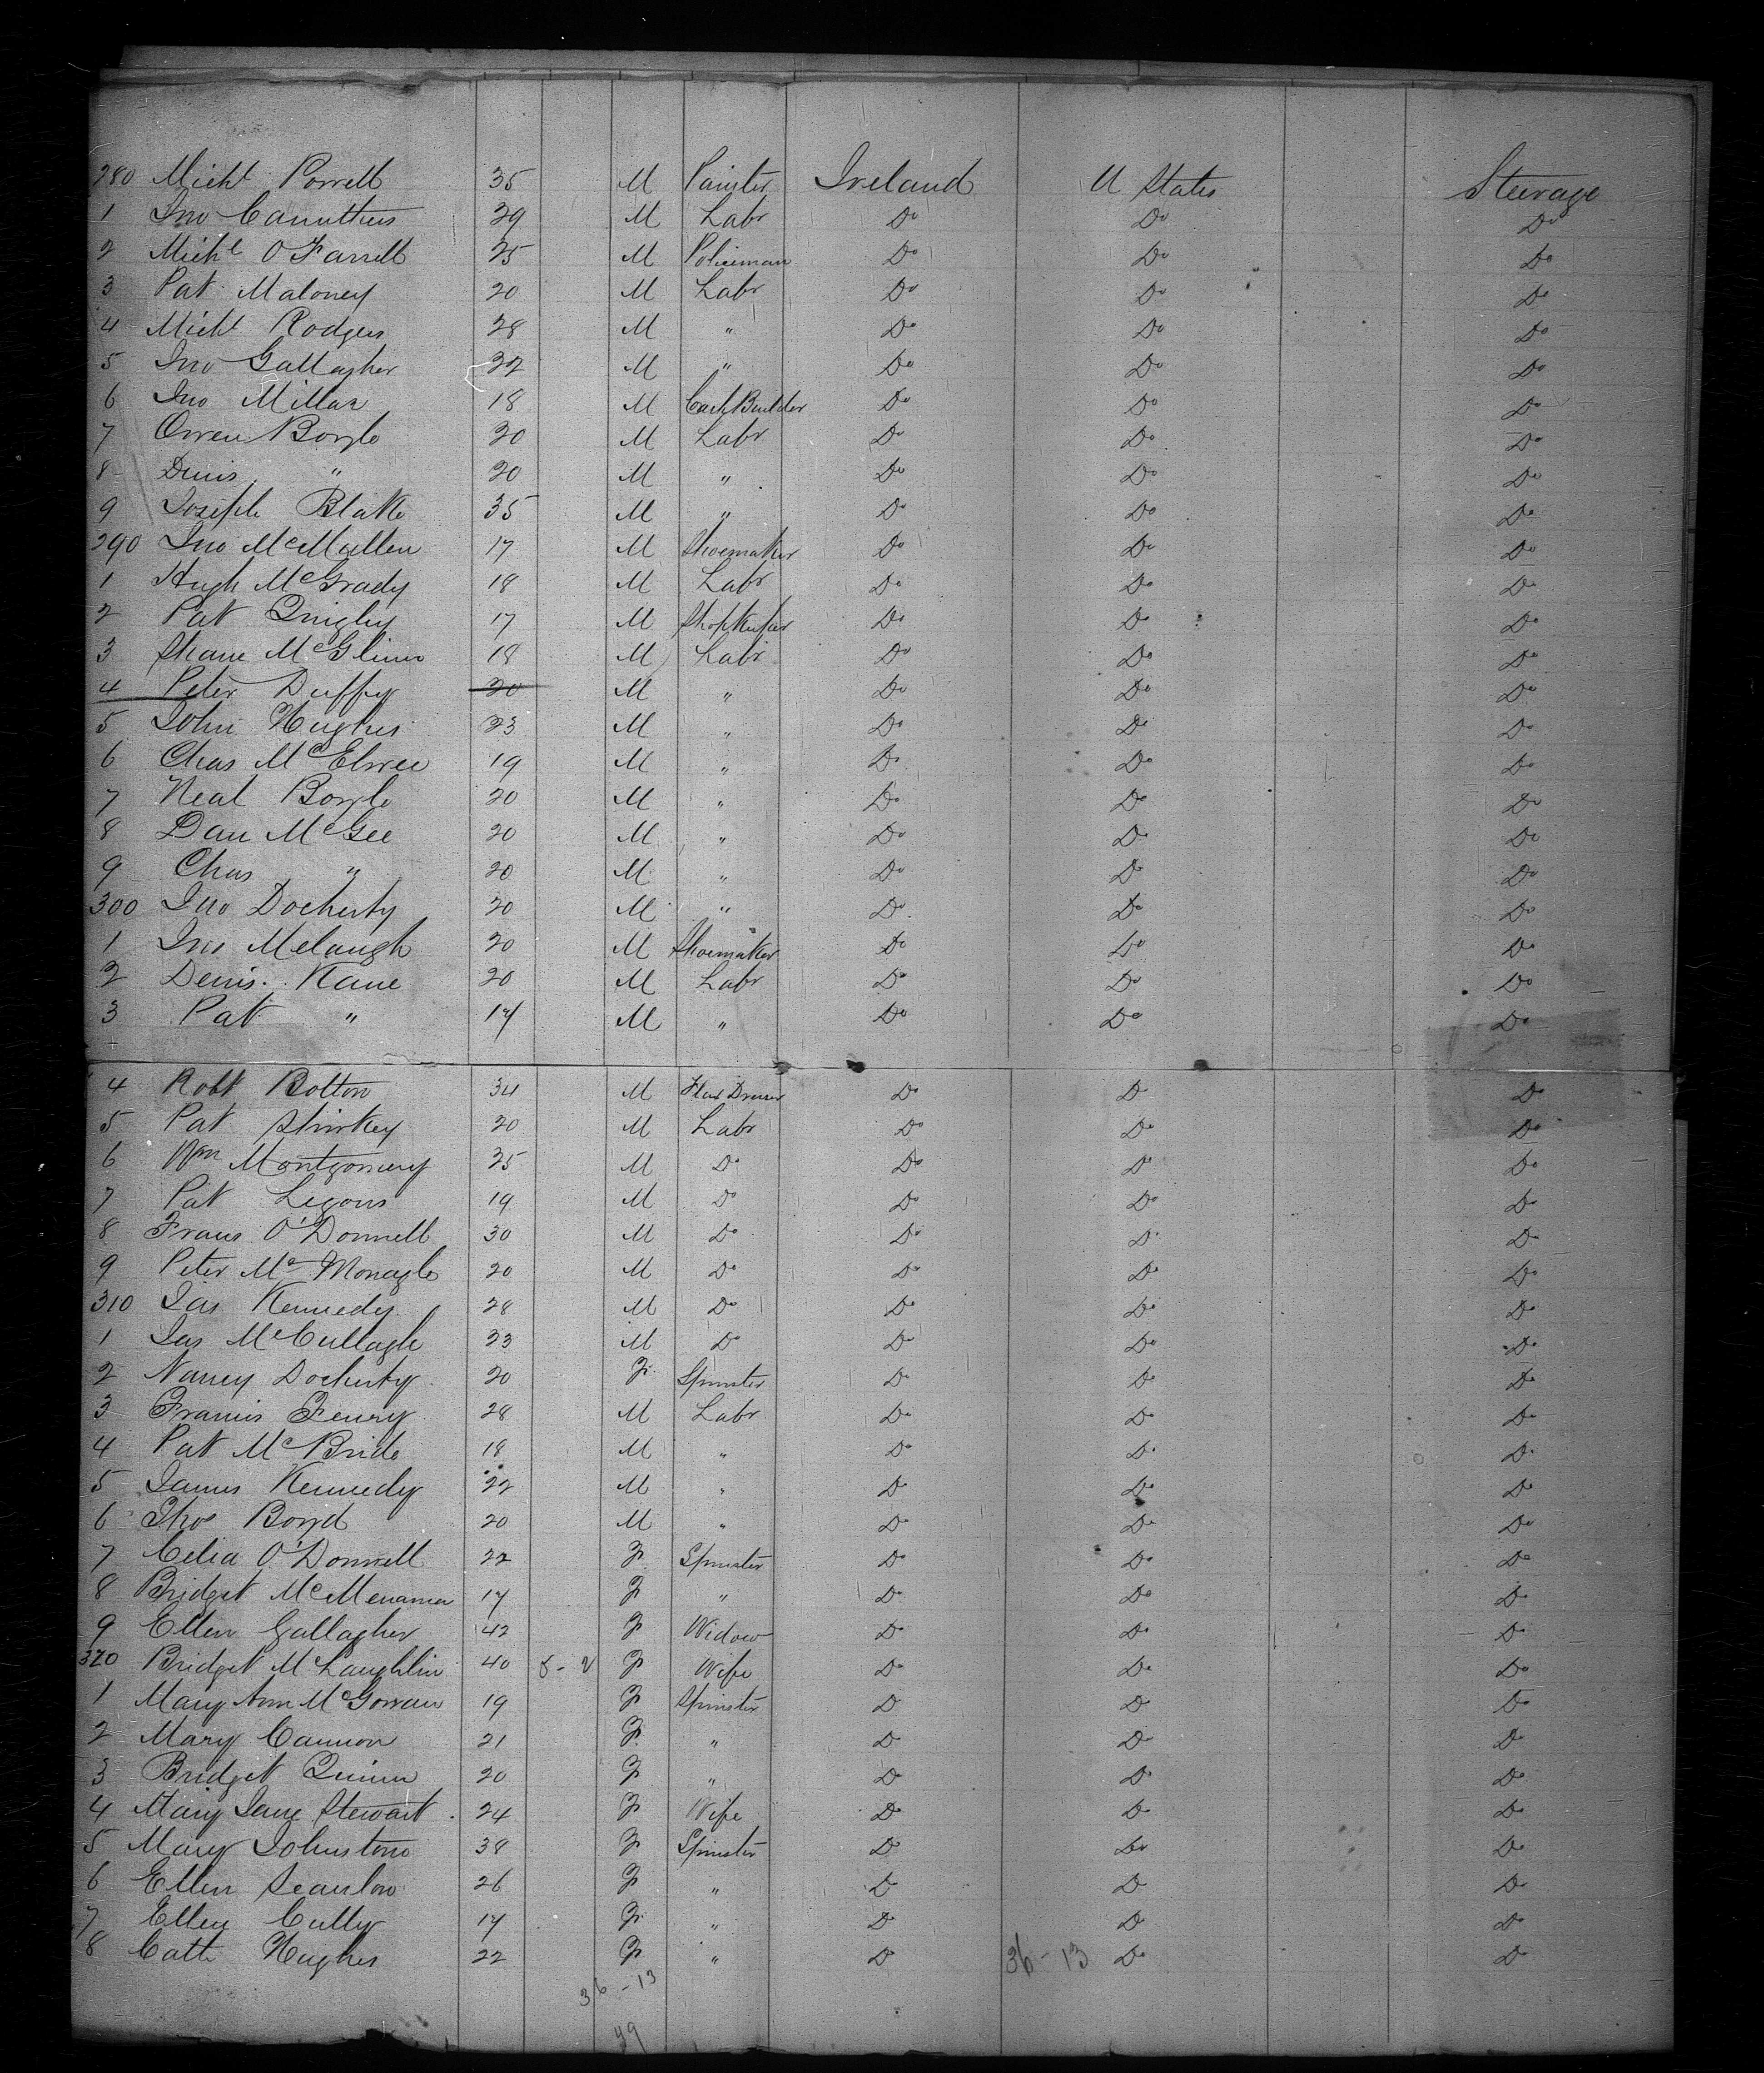 280 Michl Powell 35 M Painter Ireland U States Steerage
1 Jno Carruthers 29 M Labr Do Do Do
2 Michl O'Farrell 25 M Policeman Do Do Do
3 Pat Maloney 20 M Labr Do Do Do
4 Michl Rodgers 28 M " Do Do Do
5 Jno Gallagher 22 M " Do Do Do
6 Jno Millar 18 M Do Do Do
7 Owen Boyle 20 M Labr Do Do Do
8 Denis " 20 M " Do Do Do
9 Joseph Blake 35 M " Do Do Do
290 Jno McMullen 17 M Shoemaker Do Do Do
1 Hugh McGrady 18 M Labr Do Do Do
2 Pat Quigley 17 M Shopkeeper Do Do Do
3 Shane McGlinn 18 M Labr Do Do Do
4 Peter Duffy 20 M " Do Do Do
5 John Hughes 23 M " Do Do Do
6 Chas McElwee 19 M " Do Do Do
7 Neal Boyle 20 M " Do Do Do
8 Dan McGee 20 M " Do Do Do
9 Chas " 20 M " Do Do Do
300 Jno Docherty 20 M " Do Do Do
1 Jno Melaugh 20 M Shoemaker Do Do Do
2 Denis Kane 20 M Labr Do Do Do
3 Pat " 17 M " Do Do Do
4 Robt Bolton 34 M Flax Dresser Do Do Do
5 Pat 20 M Labr Do Do Do
6 Wm Montgomery 25 M Do Do Do Do
7 Pat 19 M Do Do Do Do
8 Frans O'Donnell 30 M Do Do Do Do
9 Peter McMonagle 20 M Do Do Do Do
310 Jas Kennedy 28 M Do Do Do Do
1 Jas McCullagh 23 M Do Do Do Do
2 Nancy Docherty 20 F Spinster Do Do Do
3 Francis Feury 28 M Labr Do Do Do
4 Pat McBride 18 M " Do Do Do
5 James Kennedy 22 M " Do Do Do
6 Thos Boyd 20 M " Do Do Do
7 Celia O'Donnell 22 F Spinster Do Do Do
8 Bridget McMenamin 17 F " Do Do Do
9 Ellen Gallagher 42 F Widow Do Do Do
320 Bridget McLaughlin 40 F Wife Do Do Do
1 Mary Ann McGowan 19 F Spinster Do Do Do
2 Mary Cannon 21 F " Do Do Do
3 Bridget Quinn 20 F " Do Do Do
4 Mary Jane Stewart 24 F Wife Do Do Do
5 Mary Johnston 38 F Spinster Do Do Do
6 Ellen Scanlon 26 F " Do Do Do
7 Ellen Cully 17 F " Do Do Do
8 Cath Hughes 22 F " Do 36-13 Do Do
36-13
49